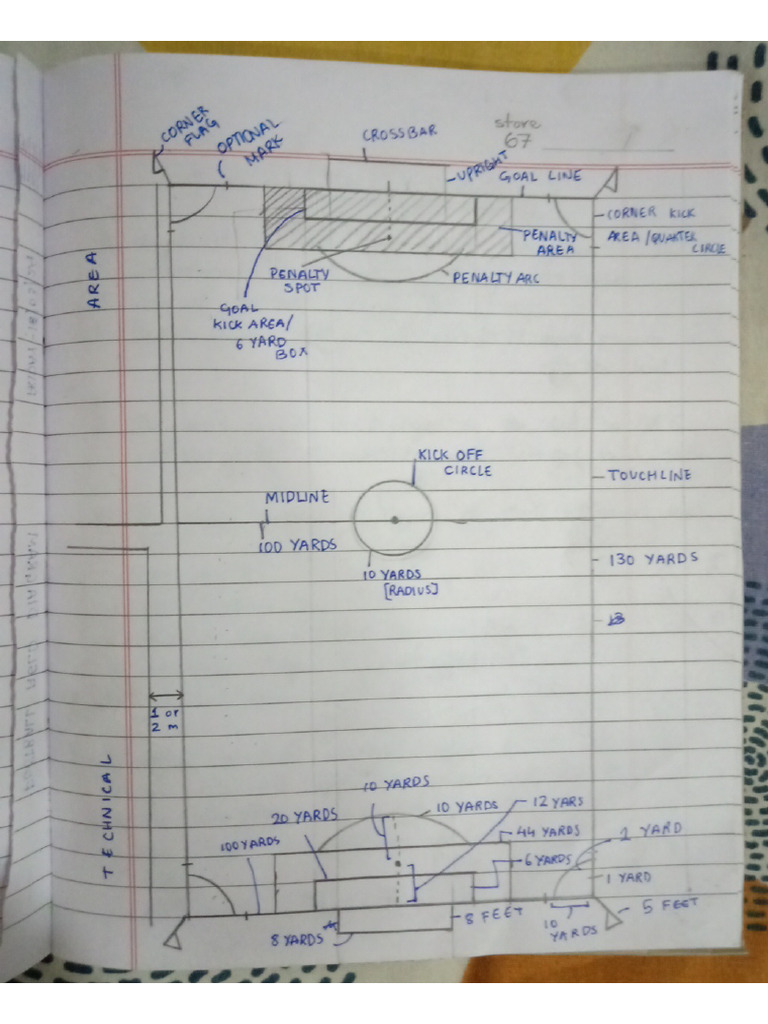 CORNER
FLAG
OPTIONAL
MARK
CROSSBAR
store
67
UPRIGHT
GOAL LINE
CORNER KICK
AREA/QUARTER
CIRCLE
PENALTY
AREA
PENALTY
SPOT
PENALTY ARC
GOAL
KICK AREA/
6 YARD
BOX
AREA
KICK OFF
CIRCLE
MIDLINE
TOUCHLINE
100 YARDS
130 YARDS
10 YARDS
[RADIUS]
1 or
2 m
TECHNICAL
10 YARDS
10 YARDS
12 YARS
20 YARDS
44 YARDS
1 YARD
100 YARDS
6 YARDS
1 YARD
8 FEET
5 FEET
8 YARDS
10
YARDS